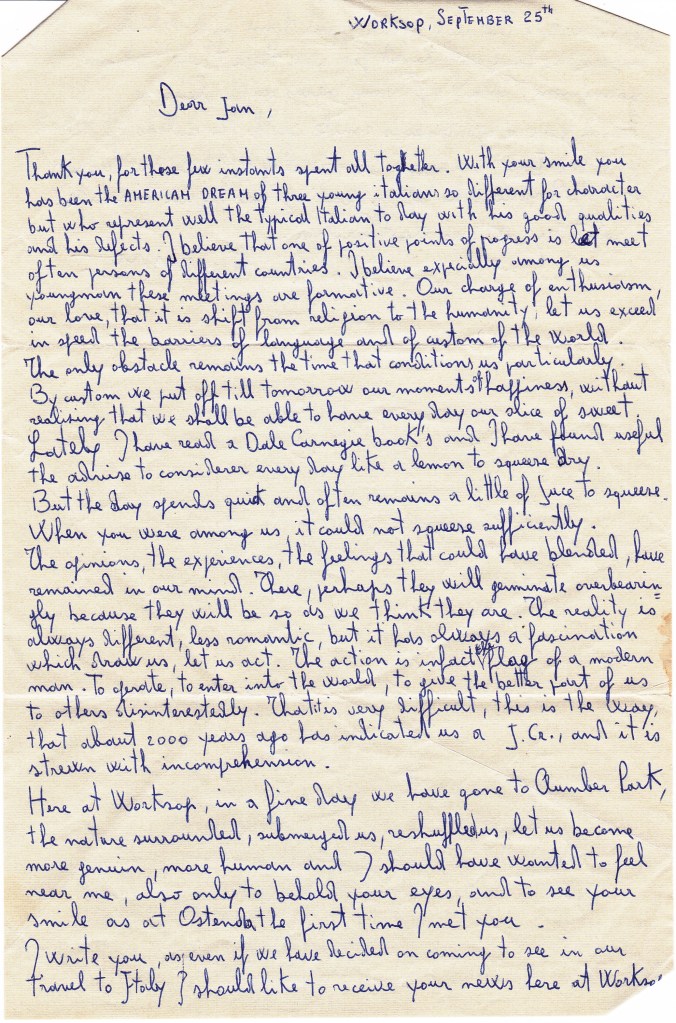 Worksop, September 25th
Dear Jan,
Thank you, for these few instants spent all togheter. With your smile you
has been the AMERICAN DREAM of three young italians so different for character
but who represent well the typical Italian to day with his good qualities
and his defects. I believe that one of positive points of progress is let meet
often persons of different countries. I believe expecially among us
youngman these meetings are formative. Our charge of enthusiasm,
our love, that it is shift from religion to the humanity, let us exceed
in speed the barriers of language and of custom of the world.
The only obstacle remains the time that conditions us particularly.
By custom we put off till tomorrow our moments of happiness, without
realising that we shall be able to have every day our slice of sweet.
Lately I have read a Dale Carnegie book's and I have found useful
the advise to considerer every day like a lemon to squeeze dry.
But the day spends quick and often remains a little of juce to squeeze.
When you were among us, it could not squeeze sufficiently.
The opinions, the experiences, the feelings that could have blended, have
remained in our mind. There, perhaps they will germinate overbearin=
gly because they will be so as we think they are. The reality is
always different, less romantic, but it has always a fascination
which draw us, let us act. The action is infact the flag of a modern
man. To operate, to enter into the world, to give the better part of us
to others disinterestedly. That is very difficult, this is the way,
that about 2000 years ago has indicated us a J.Cr., and it is
strewn with incomprehension.
Here at Worksop, in a fine day we have gone to Clumber Park,
the nature surrounded, submerged us, reshuffled us, let us become
more genuin, more human and I should have wanted to feel
near me, also only to behold your eyes, and to see your
smile as at Ostenda the first time I met you.
I write you, as even if we have decided on coming to see in our
travel to Italy I should like to receive your news here at Worksop